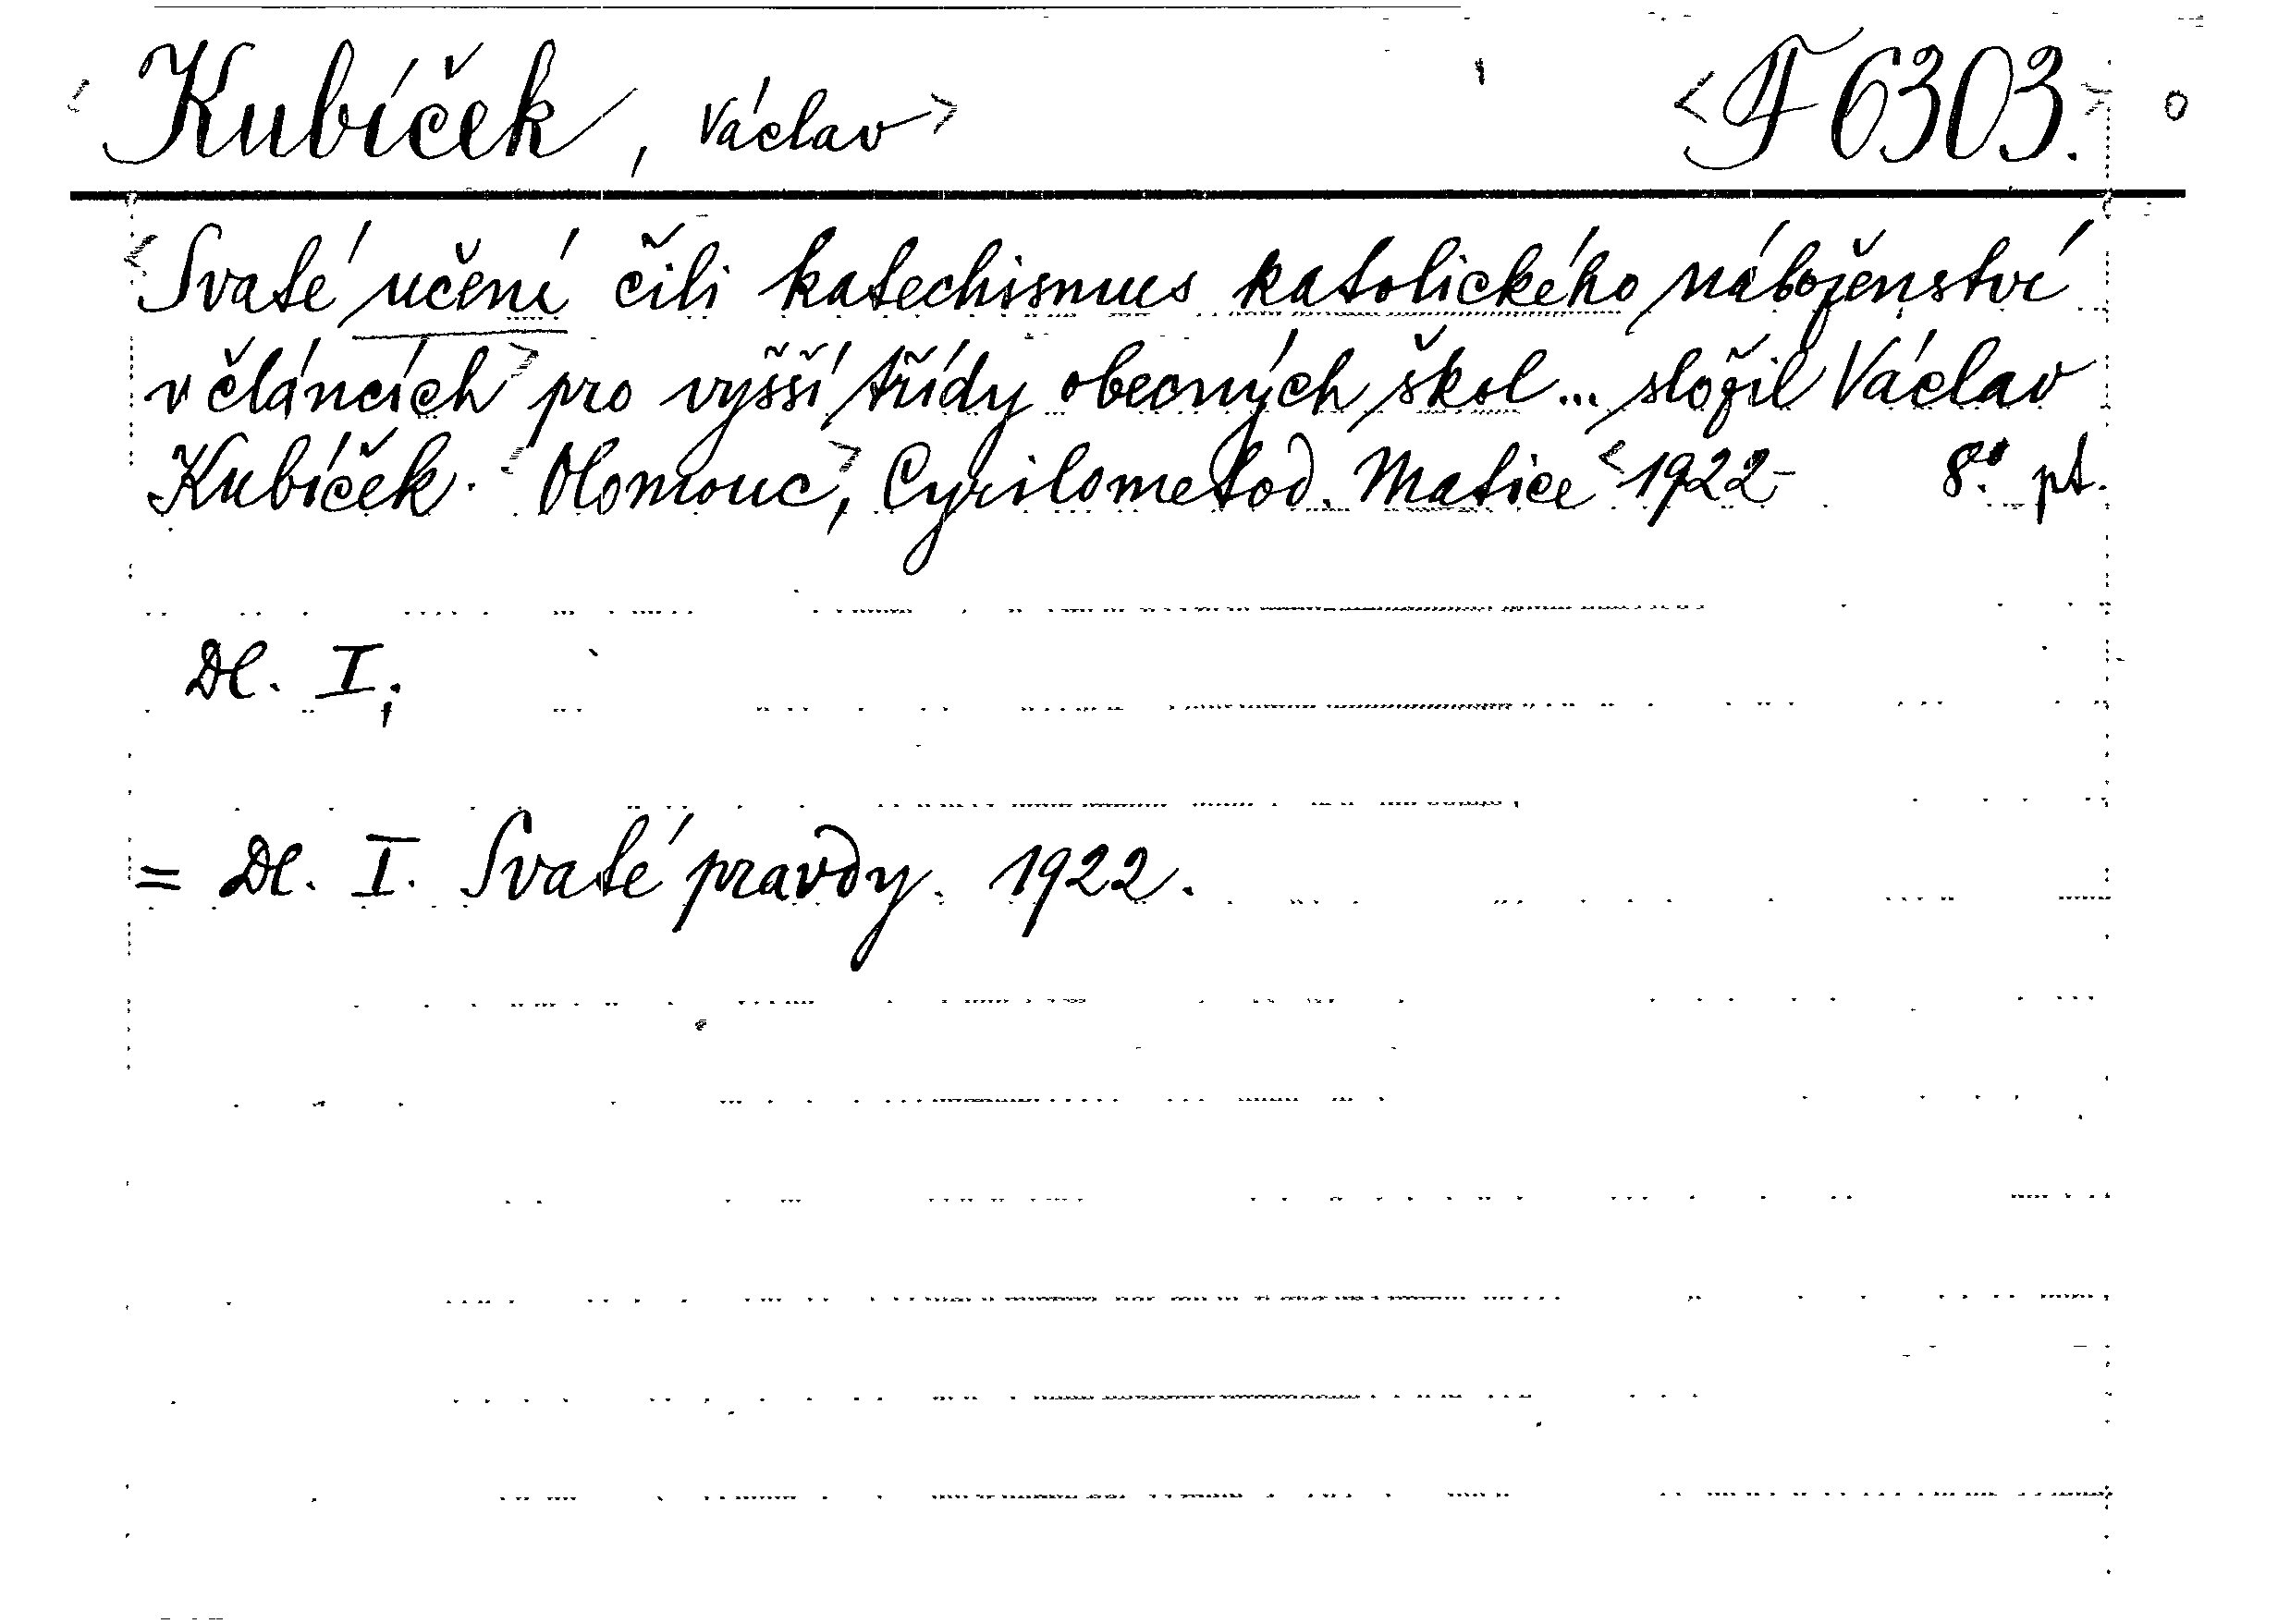 <Kubíček, Václav> <F 6303.> o
<Svaté učení čili katechismus katolického náboženství
v článcích> pro vyšší třídy obecných škol... složil Václav
Kubíček. <Olomouc>, Cyrilometod. Matice <1922- 8.° pt.
Dl. I;
= Dl. I. Svaté pravdy. 1922.